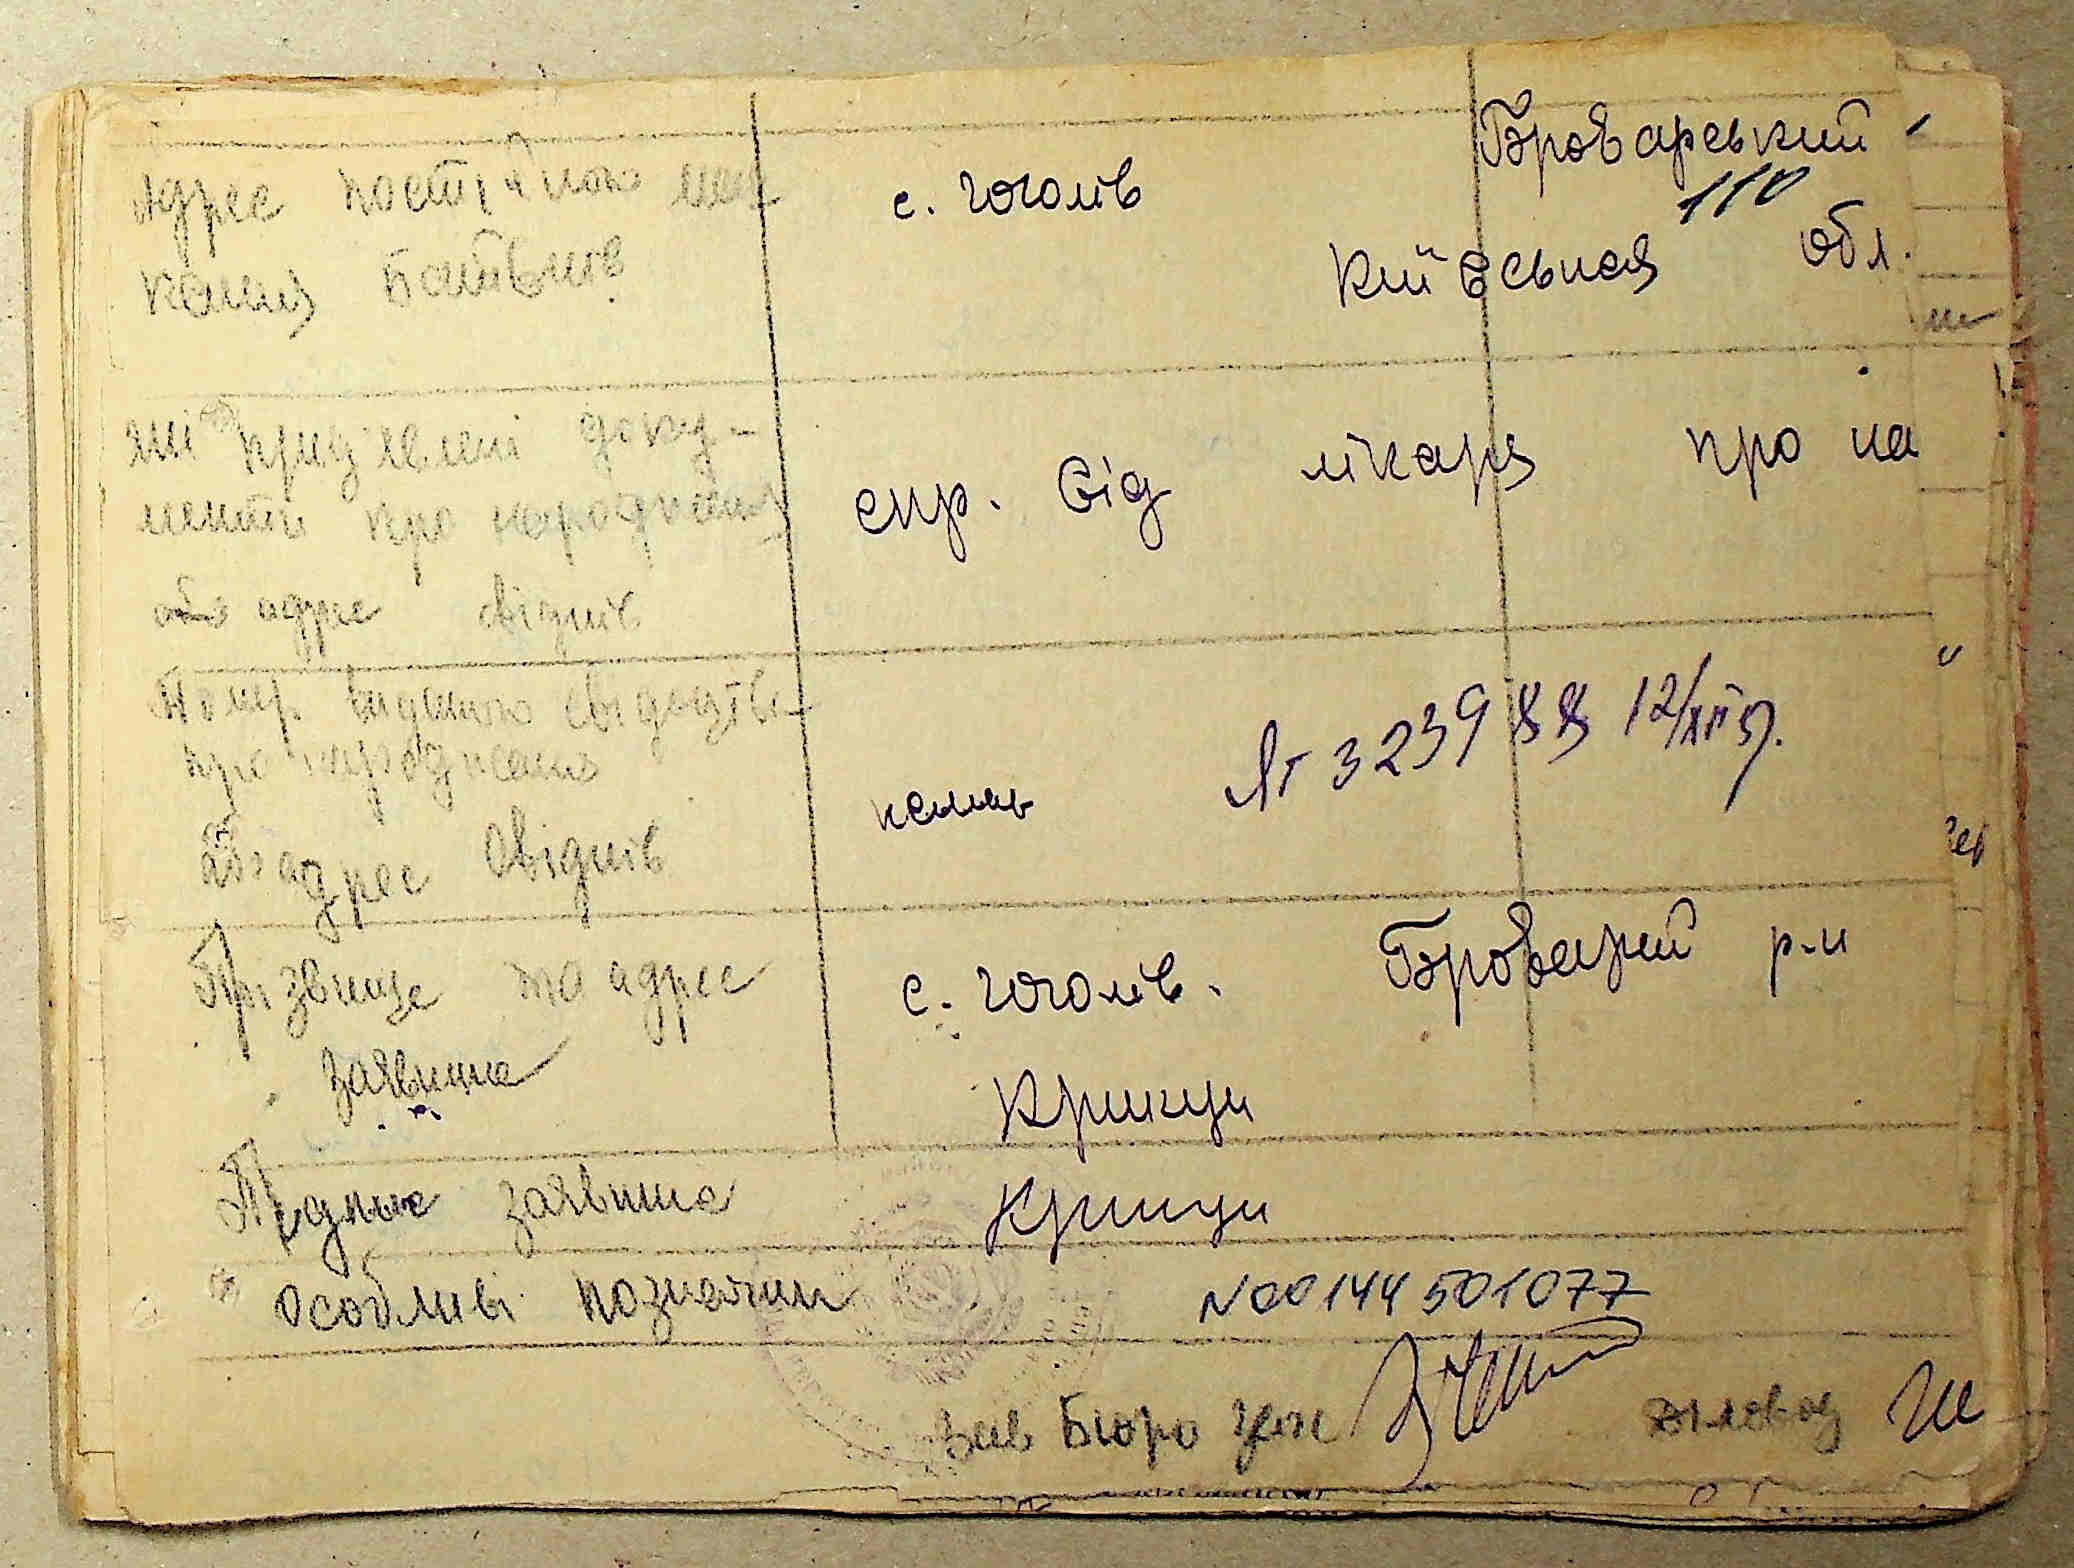 Адрес постійного меш
кання батьків
с. Гоголів Броварський
110
Київськая обл.
які пред'явлені доку-
менти про народження
або адрес свідків
спр. від лікаря про на
Номер виданого свідоцтва
про народження
або адрес свідків
немає ЯТ 323988 12/XII 57.
Прізвище та адрес
заявника
с. Гоголів. Броварский р-н
Крикун
Підпис заявника Крикун
Особливі позначки N00144501077
Зав Бюро Загс діловод